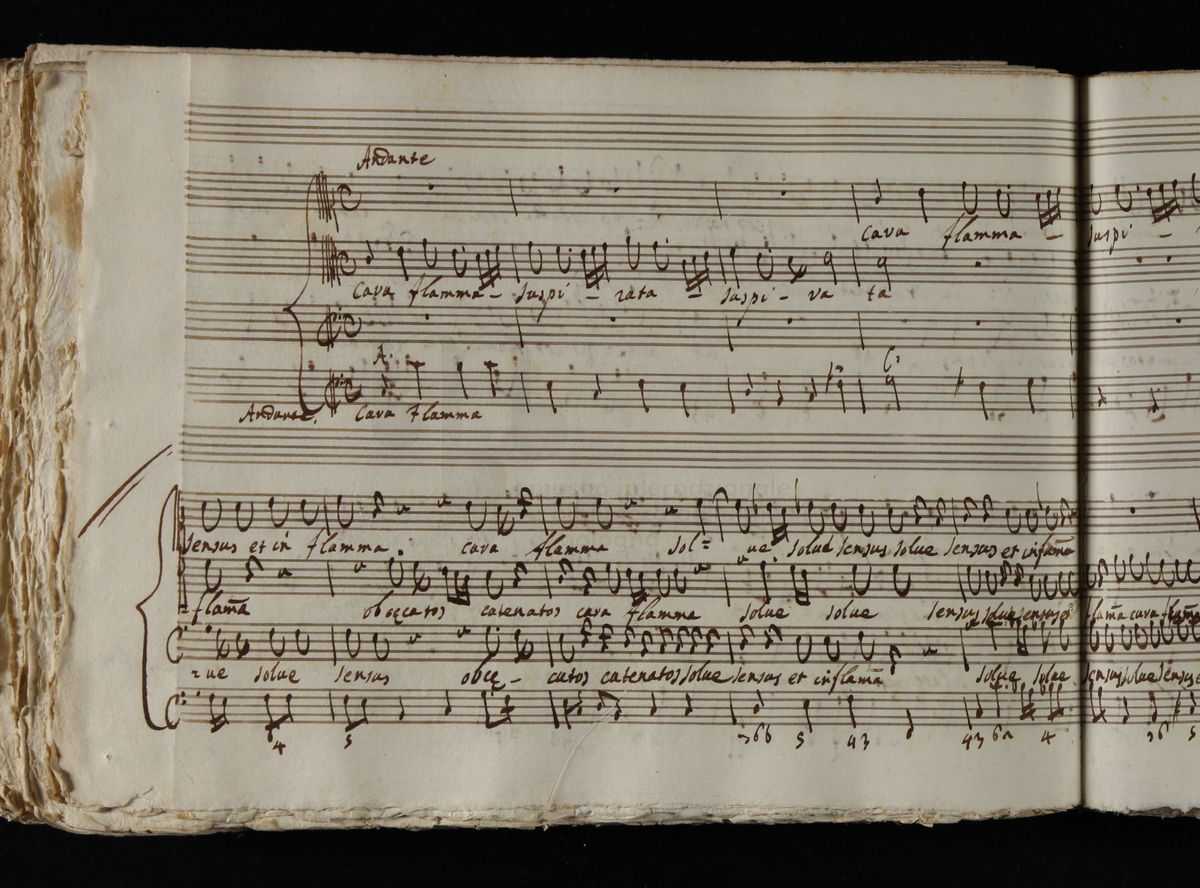 Andante
cara flamma - suspi -
Cara flamma - suspi - rata - suspi - ra ta
A: C:
Andante. Cara flamma
museo internazionale
sensus et in flamma. cara flamma sol= ue solue sensus solue sensus et inflama
= flama obcęcatos catenatos cara flamma solue solue sensus solue sensus et flama cara flama
=ue solue sensus obcę - catos catenatos solue sensus et inflama solue solue sensus solue sensus
6 4 5 5 43 6 43 4 5